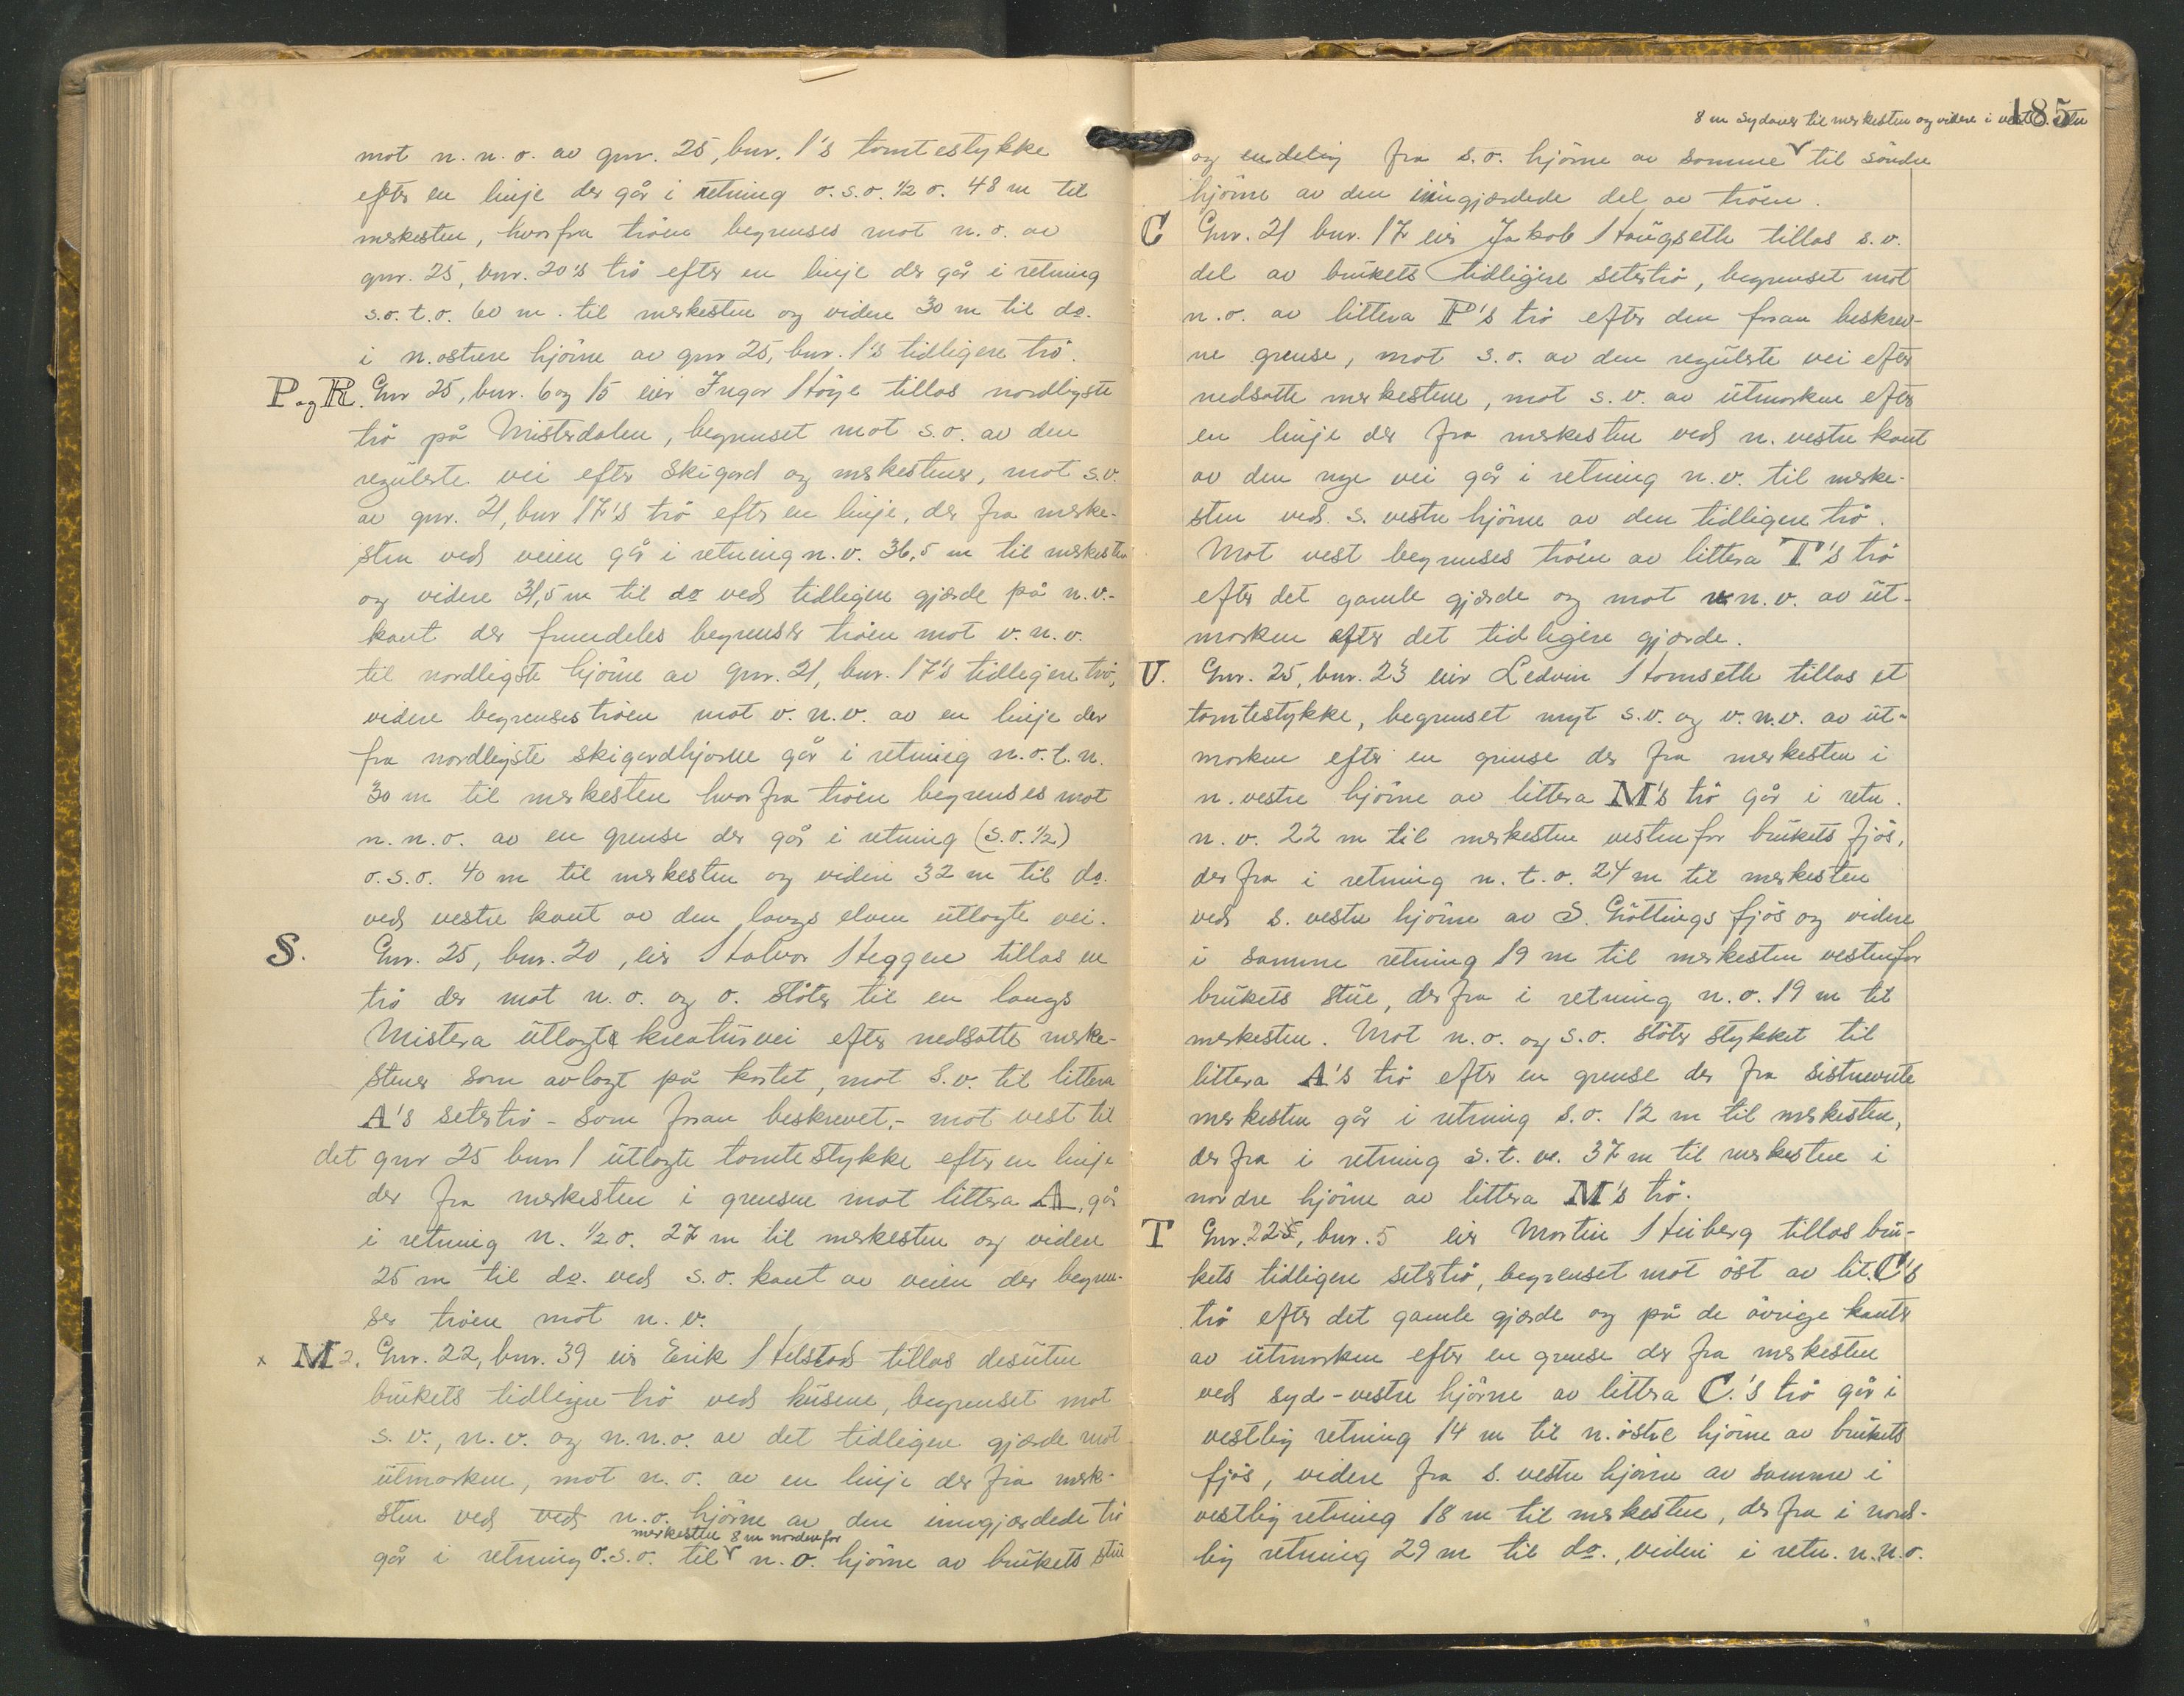 mot n. n. o. av gnr. 25, bnr. 1's tomtestykke
efter en linje der går i retning o.s.o. ½ o. 48 m til
merkesten, hvorfra tröen begrenses mot n.o. av
gnr. 25, bnr. 20's trö efter en linje der går i retning
s.o.t.o. 60 m. til merkesten og videre 30 m til do.
i n. östre hjörne av gnr 25, bnr. 1's tidligere trö.
P og R. Gnr 25, bnr. 6 og 15 eier Ingar Höye tillas nordligste
trö på Misterdalen, begrenset mot s.o. av den
regulerte vei efter skigard og merkestener, mot s.v.
av gnr. 21, bnr 17's trö efter en linje, der fra merke-
sten ved veien går i retning n.v. 36,5 m til merkesten
og videre 31,5 m til do ved tidligere gjerde på n.v.-
kant der fremdeles begrenser tröen mot v.n.v.
til nordligste hjörne av gnr. 21, bnr. 17's tidligere trö,
videre begrenses tröen mot v.n.v. av en linje der
fra nordligste skigardhjörne går i retning n.o.t.n.
30 m til merkesten hvorfra tröen begrenses mot
n.n.o. av en grense der går i retning (s.o. ½)
o.s.o. 40 m til merkesten og videre 32 m til do.
ved vestre kant av den langs elven utlagte vei.
S. Gnr. 25, bnr. 20, eier Halvor Heggen tillas en
trö der mot n.o. og o. stöter til en langs
Mistera utlagte kreaturvei efter nedsatte merke-
stener som avlagt på kartet, mot s.v. til littera
A's setertrö - som foran beskrevet, - mot vest til
det gnr 25 bnr 1 utlagte tomtestykke efter en linje
der fra merkesten i grensen mot littera A, går
i retning n. ½ o. 27 m til merkesten og videre
25 m til do. ved s.o. kant av veien der begren-
ser tröen mot n.v.
x M 2. Gnr. 22, bnr. 39 eier Erik Helstad tillas desuten
brukets tidligere trö ved husene, begrenset mot
s.v., n.v. og n.n.o. av det tidligere gjerde mot
utmarken, mot n.o. av en linje der fra merke-
sten ved ved n.o. hjörne av den inngjærdede trö
merkesten 8 m nordenfor
går i retning o.s.o. til n.o. hjörne av brukets stue
185
8 m sydöver til merkesten og videre i
og endelig fra s.o. hjörne av samme til söndre
hjörne av den inngjærdede del av tröen.
C Gnr. 21 bnr. 17 eier Jakob Haugseth tillas s.v.
del av brukets tidligere setertrö, begrenset mot
n.o. av littera P's trö efter den foran beskrev-
ne grense, mot s.o. av den regulerte vei efter
nedsatte merkestene, mot s.v. av utmarken efter
en linje der fra merkesten ved n. vestre kant
av den nye vei går i retning n.v. til merke-
sten ved s. vestre hjörne av den tidligere trö.
Mot vest begrenses tröen av littera T's trö
efter det gamle gjerde og mot n.v. av ut-
marken efter det tidligere gjærde.
U. Gnr. 25, bnr. 23 eier Ledvin Homseth tillas et
tomtestykke, begrenset myt s.v. og v.n.v. av ut-
marken efter en grense der fra merkesten i
n. vestre hjörne av littera M's trö går i retn.
n.v. 22 m til merkesten vestenfor brukets fjös,
derfra i retning n.t.o. 24 m til merkesten
ved s. vestre hjörne av S. Gröttings fjös og videre
i samme retning 19 m til merkesten vestenfor
brukets stue, derfra i retning n.o. 19 m til
merkesten. Mot n.o. og s.o. stöter stykket til
littera A's trö efter en grense der fra sistnevnte
merkesten går i retning s.o. 12 m til merkesten,
derfra i retning s.t.v. 37 m til merkesten i
nordre hjörne av littera M's trö.
T Gnr. 22, bnr. 5 eier Martin Heiberg tillas bru-
kets tidligere setertrö, begrenset mot öst av lit. C's
trö efter det gamle gjerde og på de övrige kanter
av utmarken efter en grense der fra merkesten
ved syd-vestre hjörne av littera C.'s trö går i
vestlig retning 14 m til n. östre hjörne av brukets
fjös, videre fra s. vestre hjörne av samme i
vestlig retning 18 m til merkesten, derfra i nord-
lig retning 29 m til do., videre i retn. n.n.o.